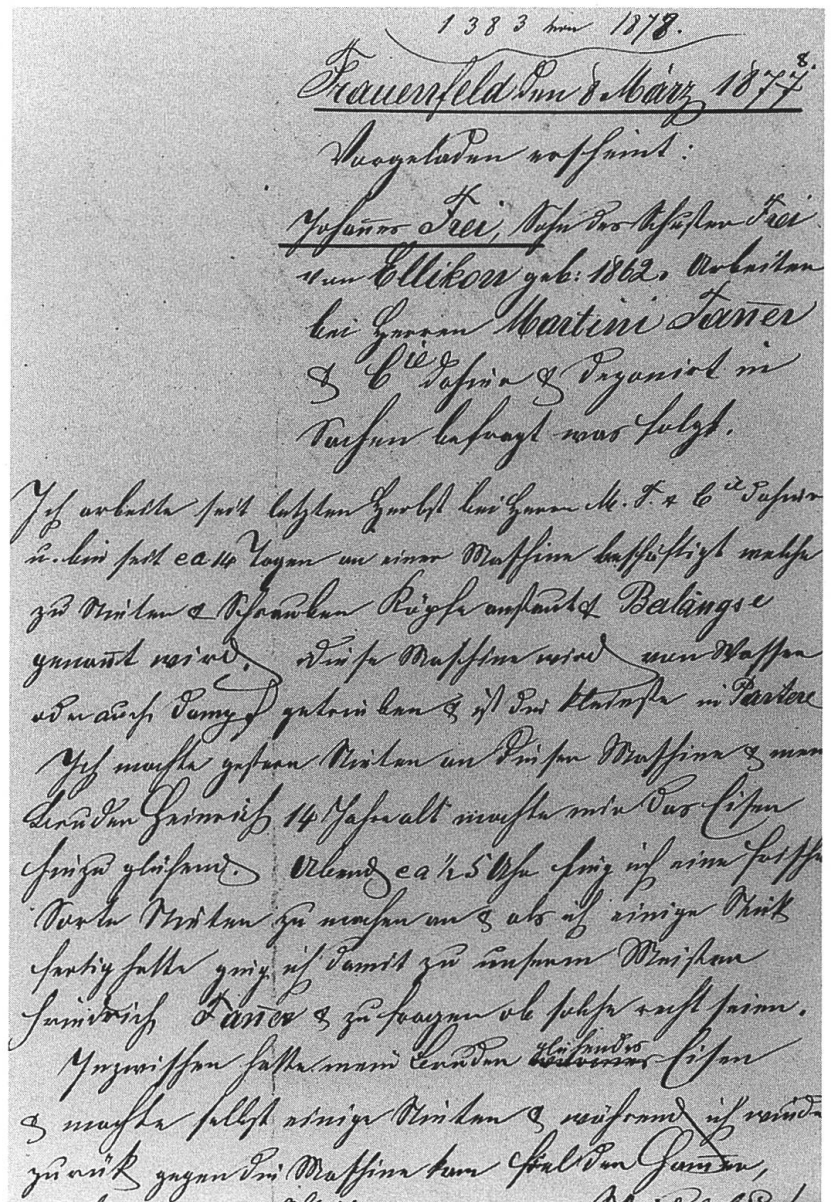 1383 von 1878.
Frauenfeld den 8 März 1877 8.
Vorgeladen erscheint:
Johañes Frei, Sohn des Schuster Frei
von Ellikon geb: 1862. Arbeiter
bei Herren Martini Tañer
& Cie dahier & deponirt in
Sachen befragt was folgt.
Ich arbeite seit letzten Herbst bei Herrn M. T. & Cie dahier
u. bin seit ca 14 Tagen an einer Maschine beschäftigt welche
zu Nieten & Schrauben Köpfe anstaucht & Balangse
genañt wird. Diese Maschine wird von Wasser
oder auch Dampf getrieben & ist die kleinste in Partere
Ich machte gestern Nieten an dieser Maschine & mein
Bruder Heinrich 14 Jahre alt machte mir das Eisen
hiezu glühend. Abend ca ½5 Uhr fing ich eine frische
Sorte Nieten zu machen an & als ich einige Stük
fertig hatte ging ich damit zu unserem Meister
Friedrich Tañer & zu fragen ob solche recht seien.
Inzwischen hatte mein Bruder glühendes Eisen
& machte selbst einige Nieten & während ich wieder
zurük gegen die Maschine kam fiel der Ham̄er,